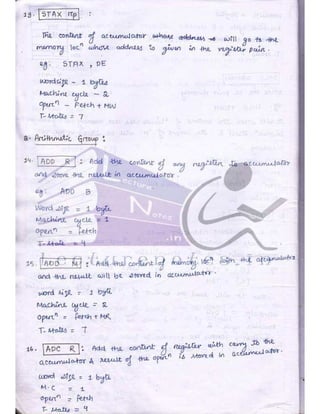 23. STAX rp :
The content of accumulator whose address is will go to the
memory locn whose address is given in the register pair.
eg: STAX , DE
wordsize - 1 bytes
Machine cycle - 2
Opern - Fetch + MW
T-states = 7
2. Arithmetic Group :
24. ADD R : Add the content of any register to accumulator
and store the result in accumulator.
eg ADD B
Word size = 1 byte
Machine cycle = 1
opern = fetch
T-state = 4
Lecture
Notes
.in
25. ADD M : Add the content of memory locn with the
and the result will be stored in accumulator.
word size = 1 byte
Machine cycle = 2
opern = Fetch + MR
T-states = 7
26. ADC R : Add the content of register with carry to the
accumulator & result of the opern is stored in accumulator.
word size = 1 byte
M.C = 1
opern = fetch
T-states = 4